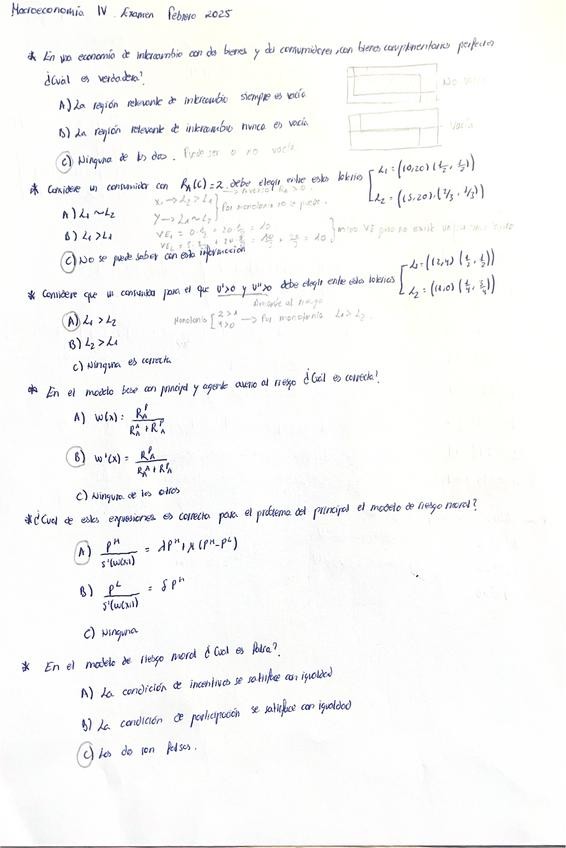 Macroeconomía IV. Examen Febrero 2025
* En una economía de intercambio con dos bienes y dos consumidores, con bienes complementarios perfectos
¿Cuál es verdadera?
A) La región relevante de intercambio siempre es vacía
No vacía
B) La región relevante de intercambio nunca es vacía
Vacía
C) Ninguna de las dos. Puede ser o no vacía
* Considere un consumidor con RA(C)=2 debe elegir entre estas loterías L1 = (10,20) (1/2, 1/2)
L2 = (15,20), (2/3, 1/3)
A) L1 ~ L2
B) L1 > L2
Por monotonía no se puede.
C) No se puede saber con esta información
* Considere que un consumidor para el que U'>0 y U''>0 debe elegir entre estas loterías L1 = ((2,4) (1/2, 1/2))
L2 = ((1,0) (1/4, 3/4))
Amante al riesgo
A) L1 > L2
Monotonía [ 2>1 4>0 → Por monotonía L1 > L2.
B) L2 > L1
C) Ninguna es correcta
* En el modelo base con principal y agente averso al riesgo ¿Cuál es correcta?
A) W(x) = R_A^P / (R_A^A + R_A^P)
B) W'(x) = R_A^P / (R_A^A + R_A^P)
C) Ninguna de las otras
* ¿Cual de estas expresiones es correcta para el problema del principal el modelo de riesgo moral?
A) P^H / S'(W(x)) = λP^H + μ(P^H - P^L)
B) P^L / S'(W(x)) = δ P^H
C) Ninguna
* En el modelo de riesgo moral ¿Cual es falsa?
A) La condición de incentivos se satisface con igualdad
B) La condición de participación se satisface con igualdad
C) Las dos son falsas.